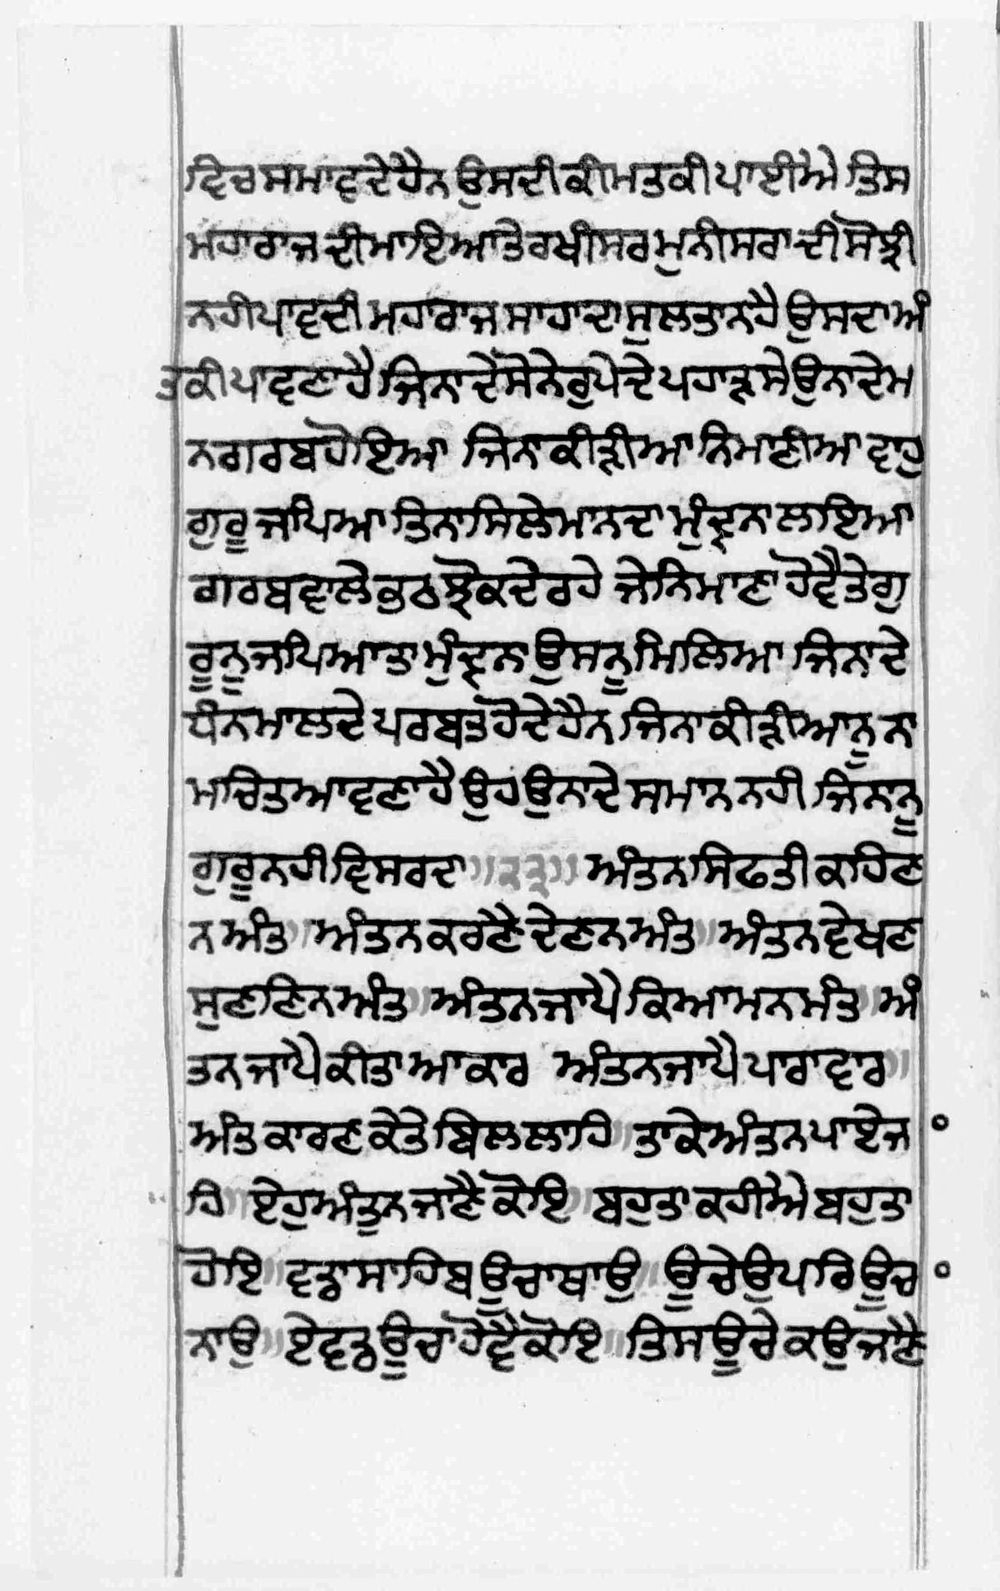 ਵਿਚਸਮਾਵਦੇਹੈਨਉਸਦੀਕੀਮਤਕੀਪਾਈਐਤਿਸ
ਮਹਾਰਾਜਦੀਮਾਇਆਤੇਰਖੀਸਰਮੁਨੀਸਰਾਦੀਸੋਝੀ
ਨਹੀਪਾਵਦੀਮਹਾਰਾਜਸਾਹਾਦਾਸੁਲਤਾਨਹੈਉਸਦਾਅੰ
ਤਕੀਪਾਵਣਾਹੈਜਿਨਾਦੇਸੋਨੇਰੁਪੇਦੇਪਹਾੜਸੇਉਨਾਦੇਮ
ਨਗਰਬਹੋਇਆ ਜਿਨਾਕੀੜੀਆਨਿਮਾਣੀਆਵਾਹੁ
ਗੁਰੂਜਪਿਆਤਿਨਾਸਿਲੇਮਾਨਦਾਮੁੰਦ੍ਰਨਾਲਾਇਆ
ਗਰਬਵਾਲੇਭਠਝੋਕਦੇਰਹੇ ਜੇਨਿਮਾਣਾਹੋਵੈਤੇਗੁ
ਰੂਨੂਜਪਿਆਤਾਮੁੰਦ੍ਰਨਾਉਸਨੂਮਿਲਿਆ ਜਿਨਾਦੇ
ਧੰਨਮਾਲਦੇਪਰਬਤਹੋਦੇਹੈਨਜਿਨਾਕੀੜੀਆਨੂਨਾ
ਮਚਿਤਆਵਣਾਹੈਉਹਉਨਾਦੇਸਮਾਨਨਹੀਜਿਨਾਨੂ
ਗੁਰੂਨਹੀਵਿਸਰਦਾ ॥੨੩॥ ਅੰਤਨਸਿਫਤੀਕਹਿਣ
ਨਅੰਤ ਅੰਤਨਕਰਣੈਦੇਣਨਅੰਤ ਅੰਤਨਵੇਖਣ
ਸੁਣਣਿਨਅੰਤ ਅੰਤਨਜਾਪੈਕਿਆਮਨਮੰਤ ਅੰ
ਤਨਜਾਪੈਕੀਤਾਆਕਾਰ ਅੰਤਨਜਾਪੈਪਾਰਾਵਾਰ
ਅੰਤਕਾਰਣਕੇਤੇਬਿਲਲਾਹਿ ਤਾਕੇਅੰਤਨਪਾਏਜ
ਹਿ ਏਹੁਅੰਤੁਨਜਾਣੈਕੋਇ ਬਹੁਤਾਕਹੀਐਬਹੁਤਾ
ਹੋਇ ਵਡਾਸਾਹਿਬਊਚਾਥਾਉ ਊਚੇਉਪਰਿਊਚ
ਨਾਉ ਏਵਡਊਚਾਹੋਵੈਕੋਇ ਤਿਸਊਚੇਕਉਜਾਣੈ